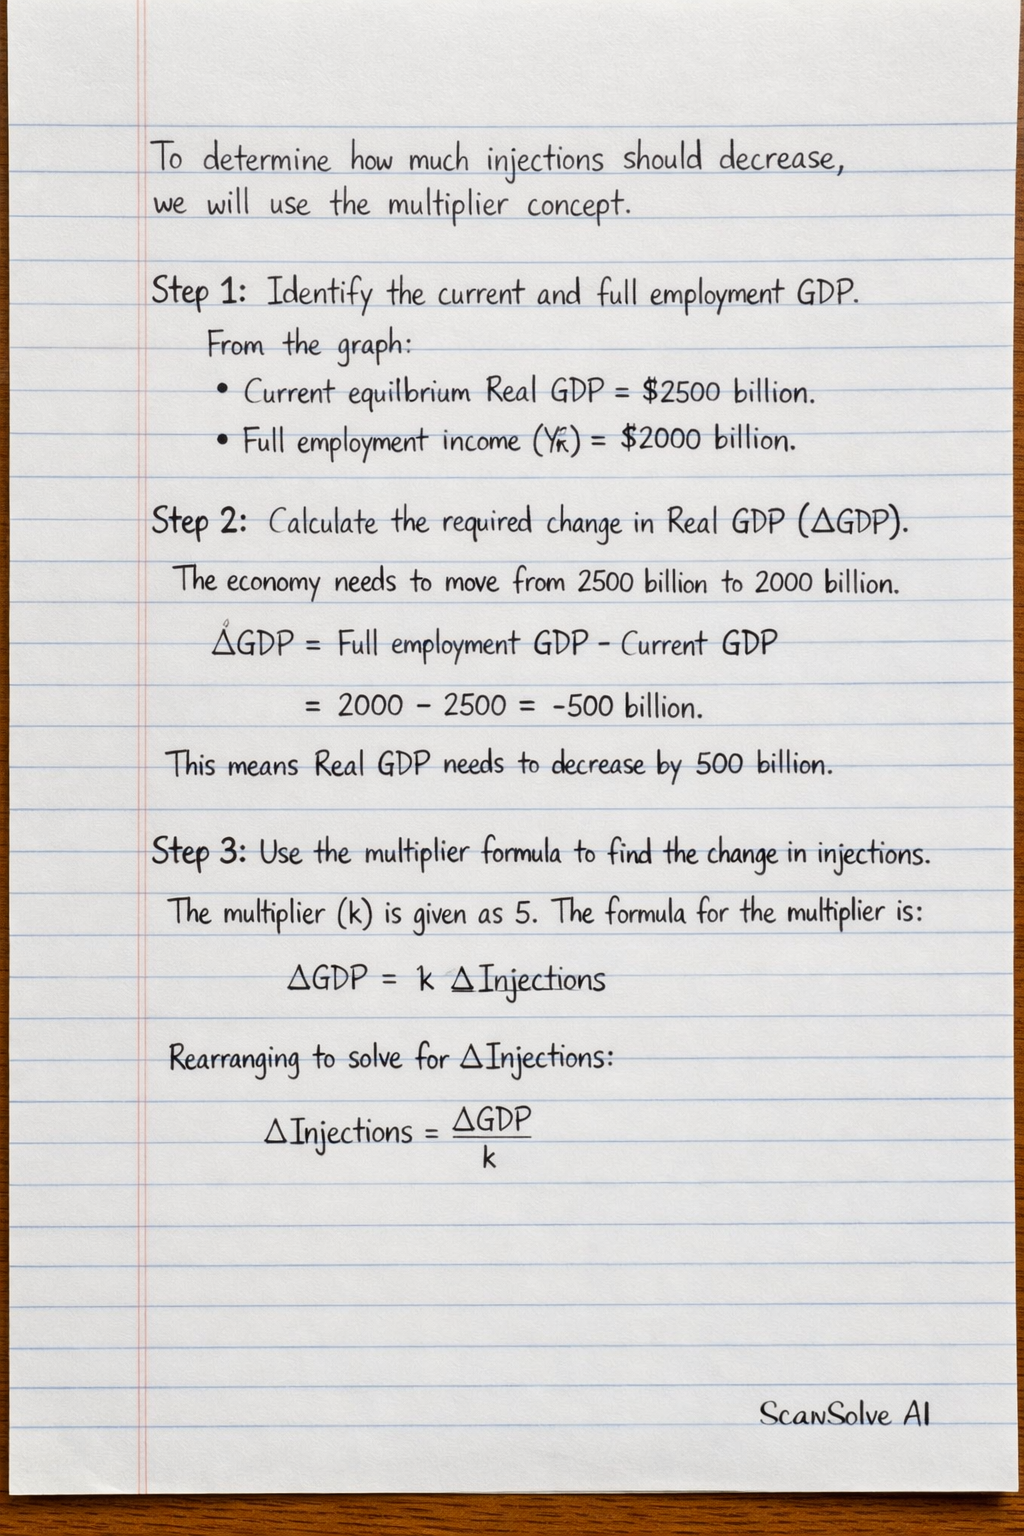 To determine how much injections should decrease,
we will use the multiplier concept.
Step 1: Identify the current and full employment GDP.
From the graph:
• Current equilbrium Real GDP = $2500 billion.
• Full employment income () = $2000 billion.
Step 2: Calculate the required change in Real GDP (ΔGDP).
The economy needs to move from 2500 billion to 2000 billion.
ΔGDP = Full employment GDP - Current GDP
= 2000 - 2500 = -500 billion.
This means Real GDP needs to decrease by 500 billion.
Step 3: Use the multiplier formula to find the change in injections.
The multiplier (k) is given as 5. The formula for the multiplier is:
ΔGDP = k ΔInjections
Rearranging to solve for ΔInjections:
ΔInjections = ΔGDP
k
ScanSolve AI